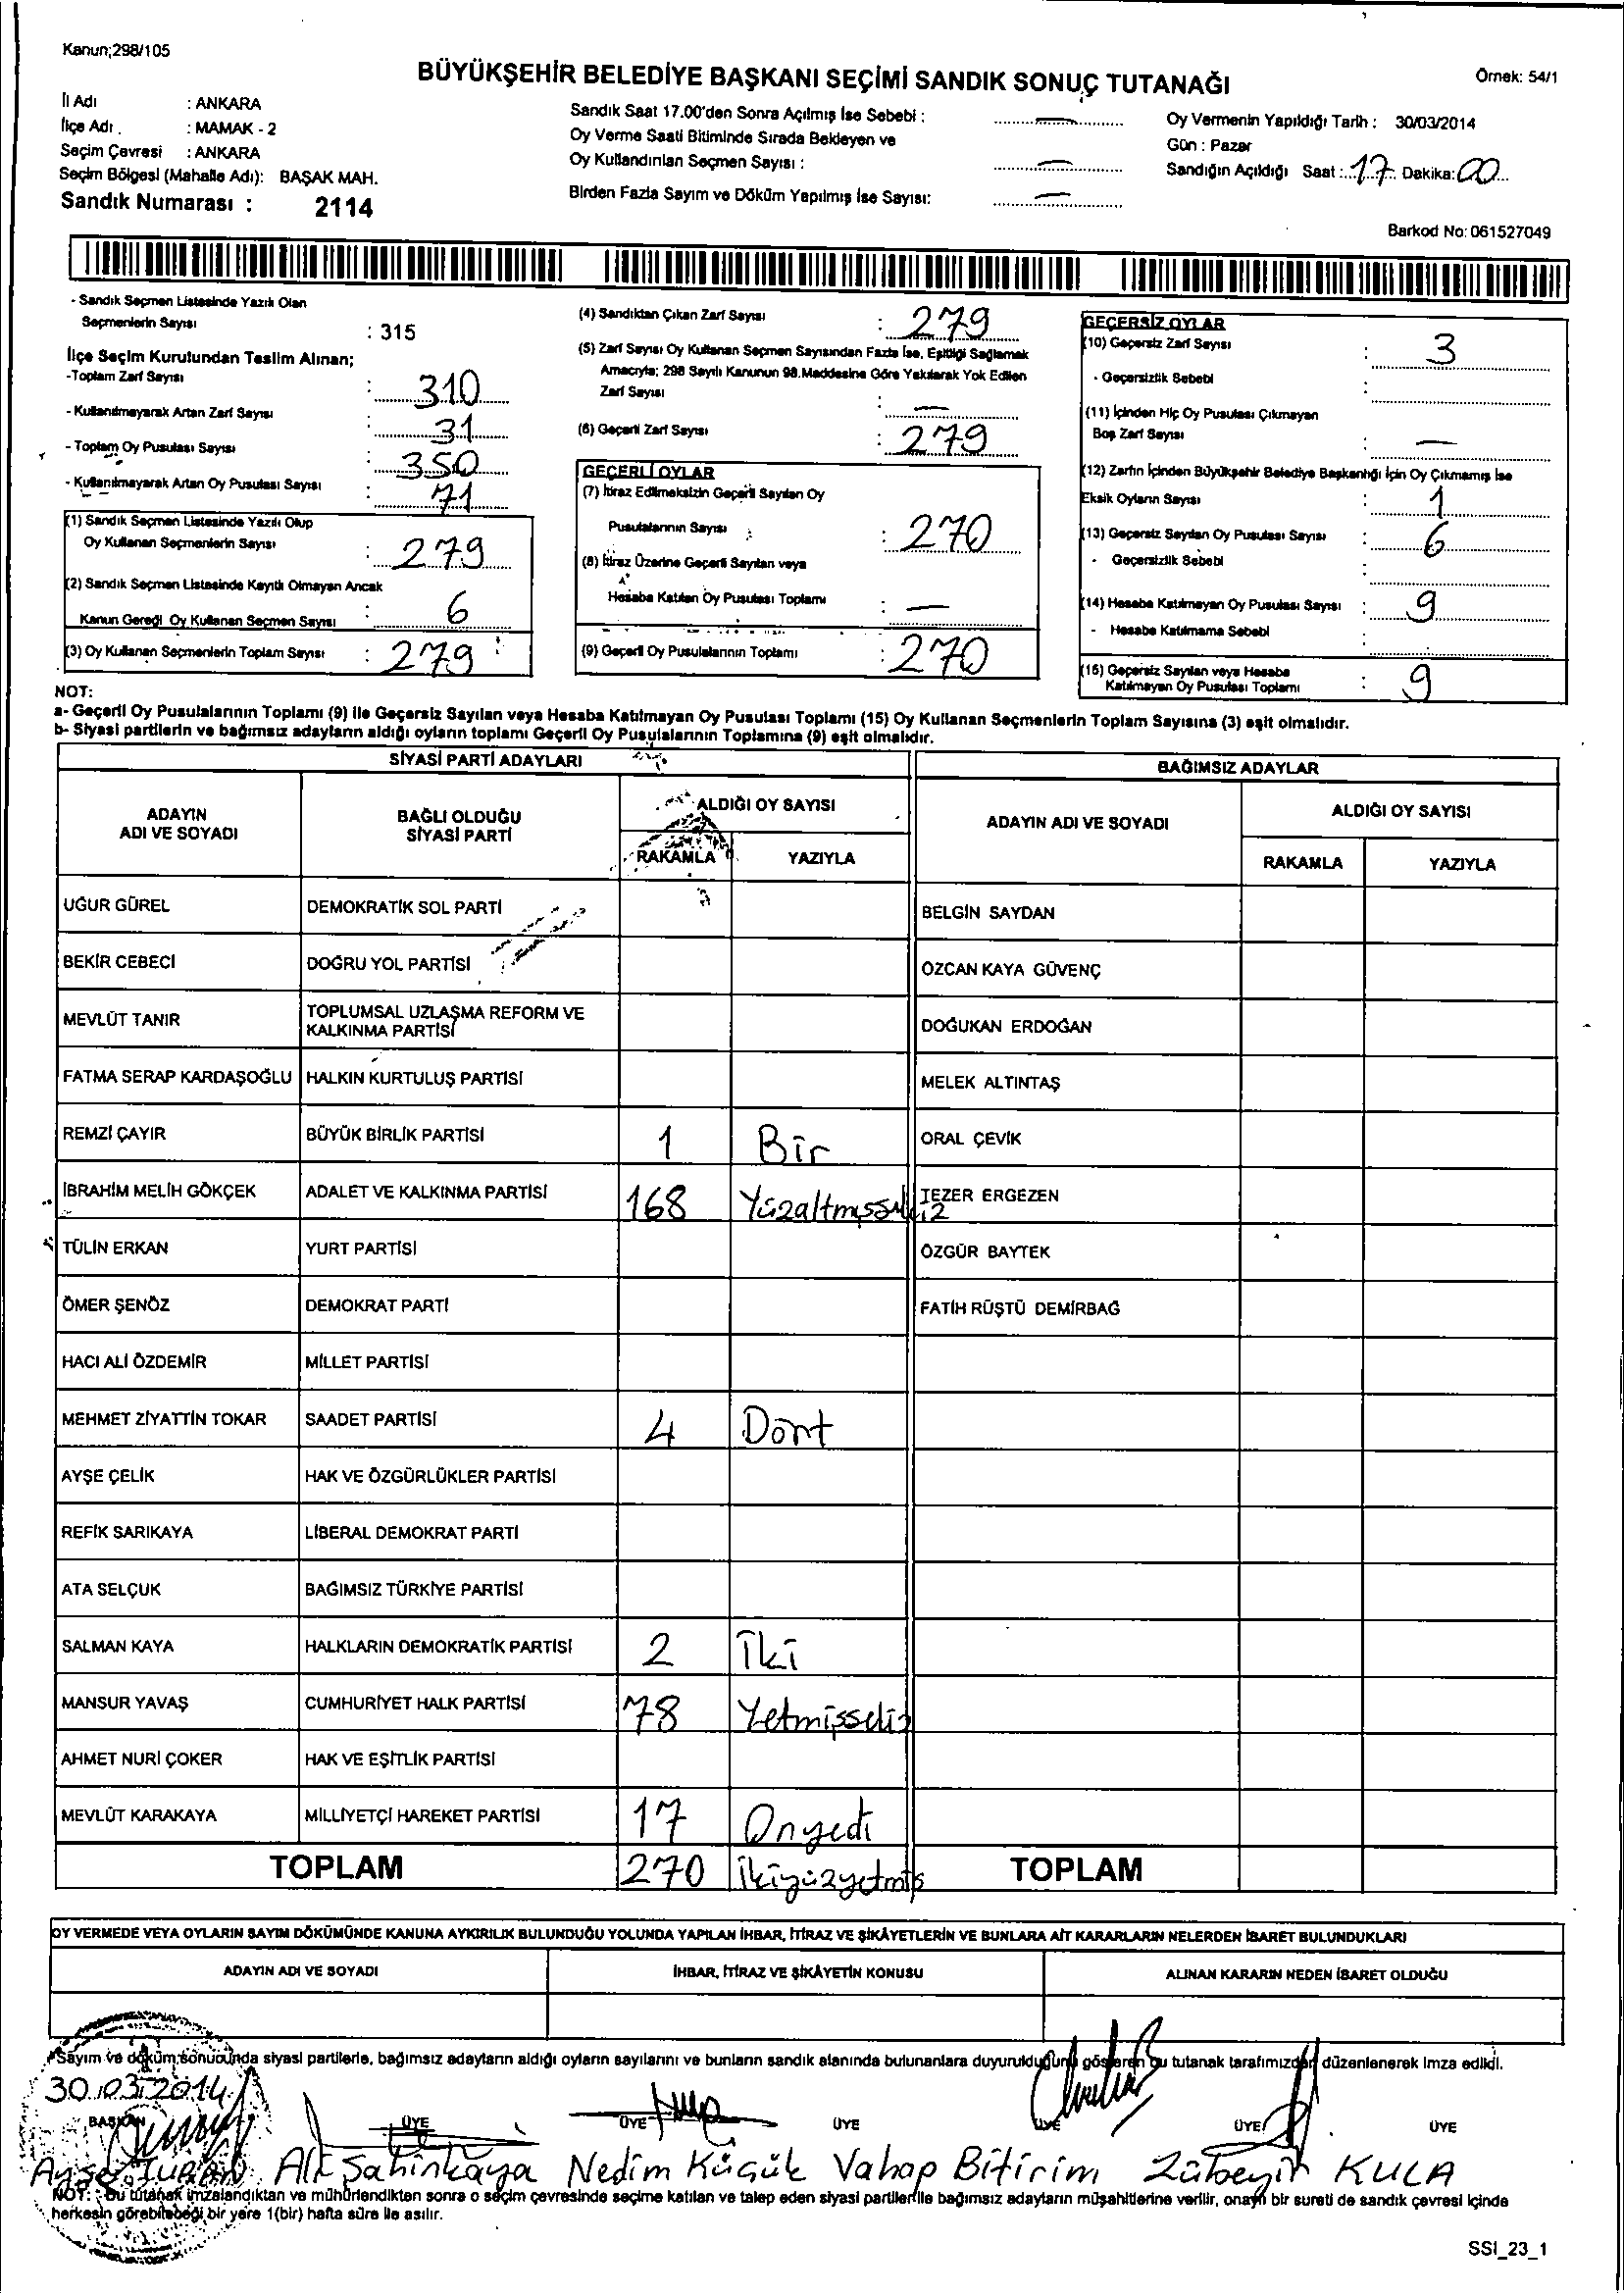 Kanun;298/105
BÜYÜKŞEHİR BELEDİYE BAŞKANI SEÇİMİ SANDIK SONUÇ TUTANAĞI
Örnek: 54/1
İl Adı : ANKARA
İlçe Adı . : MAMAK - 2
Seçim Çevresi : ANKARA
Seçim Bölgesi (Mahalle Adı): BAŞAK MAH.
Sandık Numarası : 2114
Sandık Saat 17.00'den Sonra Açılmış İse Sebebi : —
Oy Verme Saati Bitiminde Sırada Bekleyen ve
Oy Kullandırılan Seçmen Sayısı : —
Birden Fazla Sayım ve Döküm Yapılmış İse Sayısı: —
Oy Vermenin Yapıldığı Tarih : 30/03/2014
Gün : Pazar
Sandığın Açıldığı Saat : 17 Dakika: 00
Barkod No: 061527049
- Sandık Seçmen Listesinde Yazılı Olan
Seçmenlerin Sayısı : 315
İlçe Seçim Kurulundan Teslim Alınan;
-Toplam Zarf Sayısı : 310
- Kullanılmayarak Artan Zarf Sayısı : 31
- Toplam Oy Pusulası Sayısı : 350
- Kullanılmayarak Artan Oy Pusulası Sayısı : 71
(1) Sandık Seçmen Listesinde Yazılı Olup
Oy Kullanan Seçmenlerin Sayısı : 279
(2) Sandık Seçmen Listesinde Kayıtlı Olmayan Ancak
Kanun Gereği Oy Kullanan Seçmen Sayısı : 6
(3) Oy Kullanan Seçmenlerin Toplam Sayısı : 279
(4) Sandıktan Çıkan Zarf Sayısı : 279
(5) Zarf Sayısı Oy Kullanan Seçmen Sayısından Fazla İse, Eşitliği Sağlamak
Amacıyla; 298 Sayılı Kanunun 98.Maddesine Göre Yakılarak Yok Edilen
Zarf Sayısı : —
(6) Geçerli Zarf Sayısı : 279
GEÇERLİ OYLAR
(7) İtiraz Edilmeksizin Geçerli Sayılan Oy
Pusulalarının Sayısı : 270
(8) İtiraz Üzerine Geçerli Sayılan veya
Hesaba Katılan Oy Pusulası Toplamı : —
(9) Geçerli Oy Pusulalarının Toplamı : 270
GEÇERSİZ OYLAR
(10) Geçersiz Zarf Sayısı : 3
- Geçersizlik Sebebi :
(11) İçinden Hiç Oy Pusulası Çıkmayan
Boş Zarf Sayısı : —
(12) Zarfın İçinden Büyükşehir Belediye Başkanlığı İçin Oy Çıkmamış İse
Eksik Oyların Sayısı : 1
(13) Geçersiz Sayılan Oy Pusulası Sayısı : 6
- Geçersizlik Sebebi :
(14) Hesaba Katılmayan Oy Pusulası Sayısı : 9
- Hesaba Katılmama Sebebi :
(15) Geçersiz Sayılan veya Hesaba
Katılmayan Oy Pusulası Toplamı : 9
NOT:
a- Geçerli Oy Pusulalarının Toplamı (9) ile Geçersiz Sayılan veya Hesaba Katılmayan Oy Pusulası Toplamı (15) Oy Kullanan Seçmenlerin Toplam Sayısına (3) eşit olmalıdır.
b- Siyasi partilerin ve bağımsız adayların aldığı oyların toplamı Geçerli Oy Pusulalarının Toplamına (9) eşit olmalıdır.
SİYASİ PARTİ ADAYLARI
BAĞIMSIZ ADAYLAR
ADAYIN ADI VE SOYADI
BAĞLI OLDUĞU SİYASİ PARTİ
ALDIĞI OY SAYISI
RAKAMLA YAZIYLA
ADAYIN ADI VE SOYADI
ALDIĞI OY SAYISI
RAKAMLA YAZIYLA
UĞUR GÜREL DEMOKRATİK SOL PARTİ BELGİN SAYDAN
BEKİR CEBECİ DOĞRU YOL PARTİSİ ÖZCAN KAYA GÜVENÇ
MEVLÜT TANIR TOPLUMSAL UZLAŞMA REFORM VE KALKINMA PARTİSİ DOĞUKAN ERDOĞAN
FATMA SERAP KARDAŞOĞLU HALKIN KURTULUŞ PARTİSİ MELEK ALTINTAŞ
REMZİ ÇAYIR BÜYÜK BİRLİK PARTİSİ 1 Bir ORAL ÇEVİK
İBRAHİM MELİH GÖKÇEK ADALET VE KALKINMA PARTİSİ 168 Yüzaltmışsekiz TEZER ERGEZEN
TÜLİN ERKAN YURT PARTİSİ ÖZGÜR BAYTEK
ÖMER ŞENÖZ DEMOKRAT PARTİ FATİH RÜŞTÜ DEMİRBAĞ
HACI ALİ ÖZDEMİR MİLLET PARTİSİ
MEHMET ZİYATTİN TOKAR SAADET PARTİSİ 4 Dört
AYŞE ÇELİK HAK VE ÖZGÜRLÜKLER PARTİSİ
REFİK SARIKAYA LİBERAL DEMOKRAT PARTİ
ATA SELÇUK BAĞIMSIZ TÜRKİYE PARTİSİ
SALMAN KAYA HALKLARIN DEMOKRATİK PARTİSİ 2 İki
MANSUR YAVAŞ CUMHURİYET HALK PARTİSİ 78 Yetmişseliz
AHMET NURİ ÇOKER HAK VE EŞİTLİK PARTİSİ
MEVLÜT KARAKAYA MİLLİYETÇİ HAREKET PARTİSİ 17 Onyedi
TOPLAM 270 İkiyüzyetmiş TOPLAM
OY VERMEDE VEYA OYLARIN SAYIM DÖKÜMÜNDE KANUNA AYKIRILIK BULUNDUĞU YOLUNDA YAPILAN İHBAR, İTİRAZ VE ŞİKÂYETLERİN VE BUNLARA AİT KARARLARIN NELERDEN İBARET BULUNDUKLARI
ADAYIN ADI VE SOYADI İHBAR, İTİRAZ VE ŞİKÂYETİN KONUSU ALINAN KARARIN NEDEN İBARET OLDUĞU
Sayım ve döküm sonucunda siyasi partilerle, bağımsız adayların aldığı oyların sayılarını ve bunların sandık alanında bulunanlara duyurulduğunu gösteren bu tutanak tarafımızdan düzenlenerek imza edildi.
30.03.2014
BAŞKAN ÜYE ÜYE ÜYE ÜYE ÜYE ÜYE
Ayşe TURAN Ali Şahinkaya Nedim Küçük Vahap Bitirim Zübeyir KULA
NOT: Bu tutanak imzalandıktan ve mühürlendikten sonra o seçim çevresinde seçime katılan ve talep eden siyasi partiler ile bağımsız adayların müşahitlerine verilir, onaylı bir sureti de sandık çevresi içinde
herkesin görebileceği bir yere 1(bir) hafta süre ile asılır.
SSI_23_1